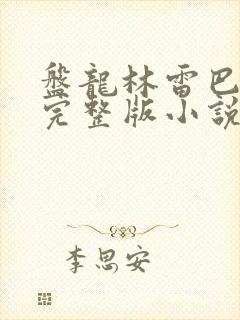 盤龍林雷巴
完整版小說
李思安